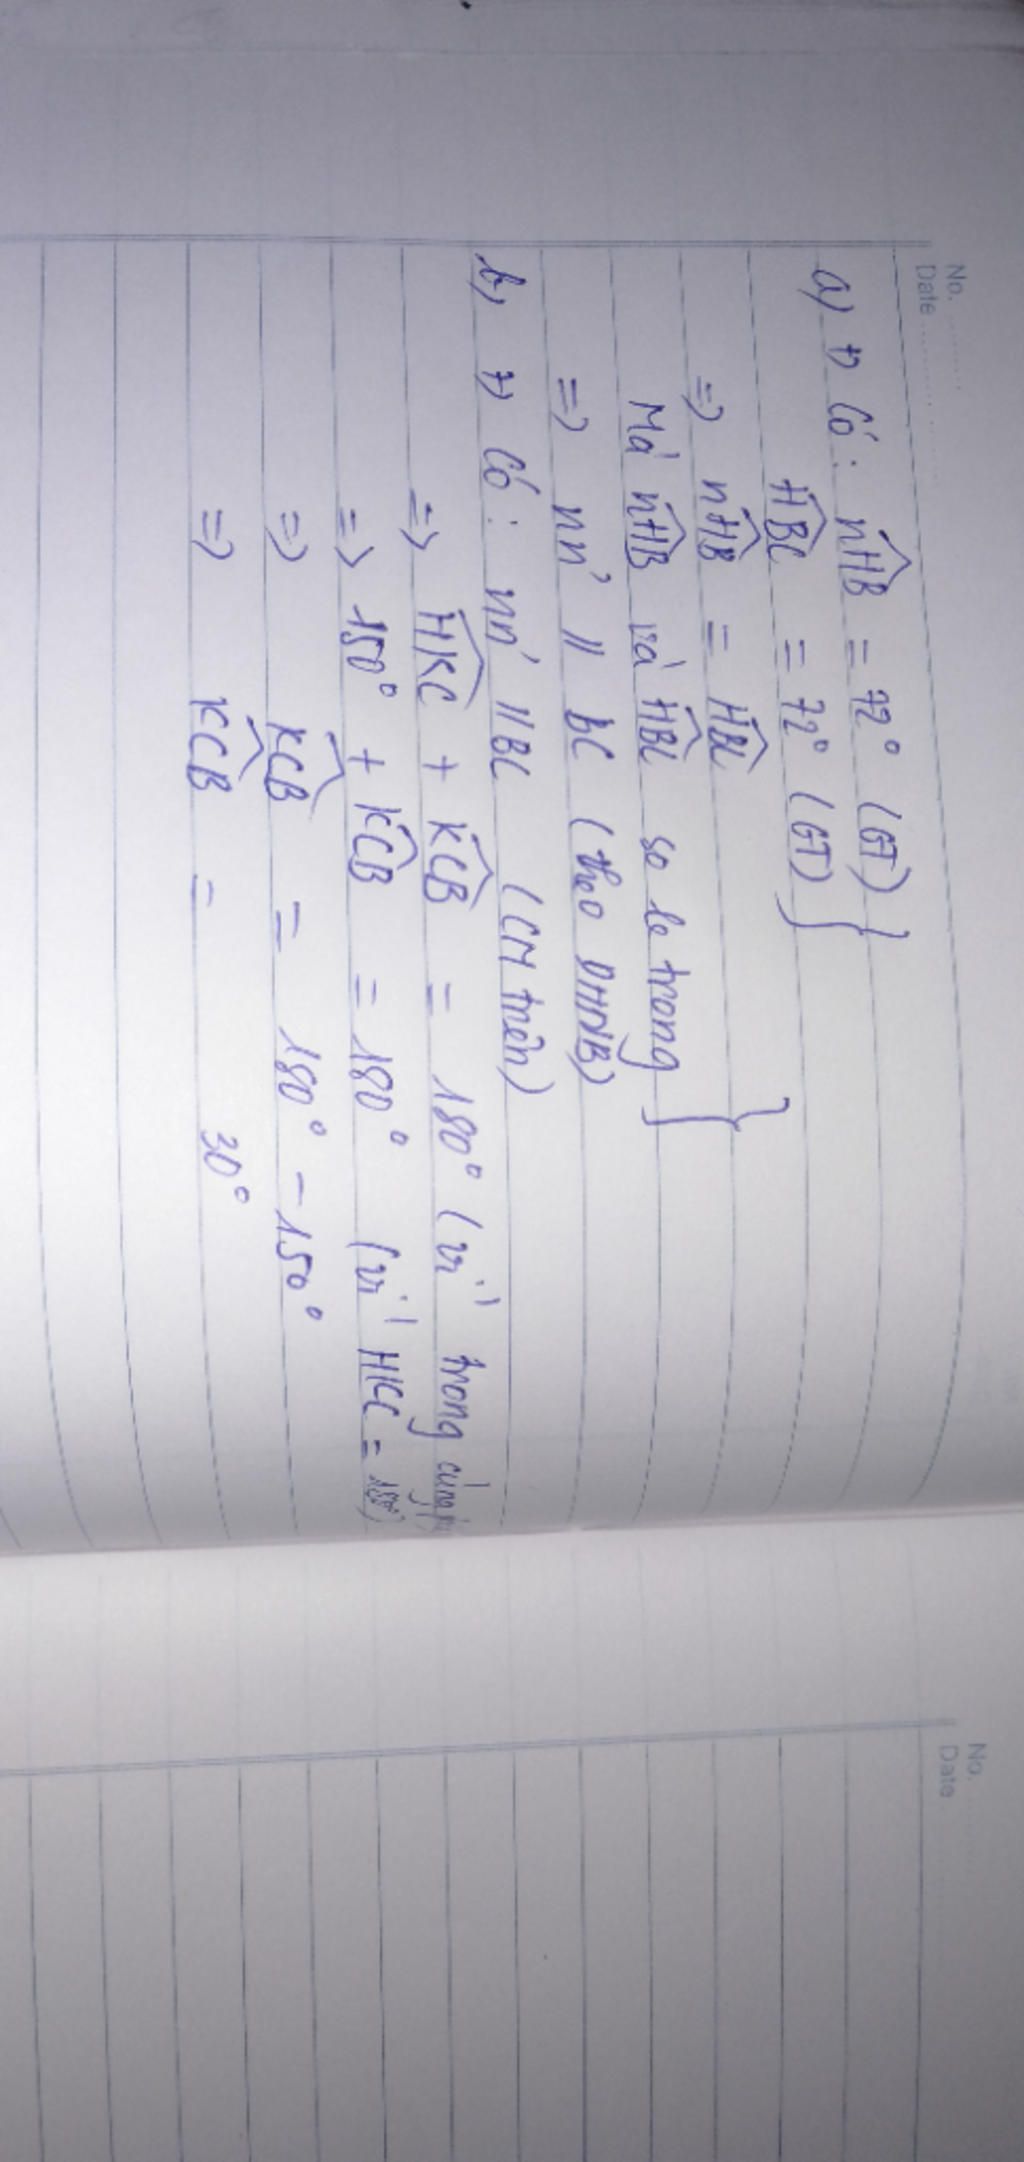 No. ..........
Date ....................
a, +) Có: nHB = 72° (GT) }
HBC = 72° (GT)
=> nHB = HBC
Mà nHB và HBC so le trong }
=> nn' // BC (theo DHNB)
b, +) Có: nn' // BC (CM trên)
=> HKC + KCB = 180° (vì trong cùng
=> 150° + KCB = 180° (vì HKC = 150°)
=> KCB = 180° - 150°
=> KCB = 30°
No.
Date